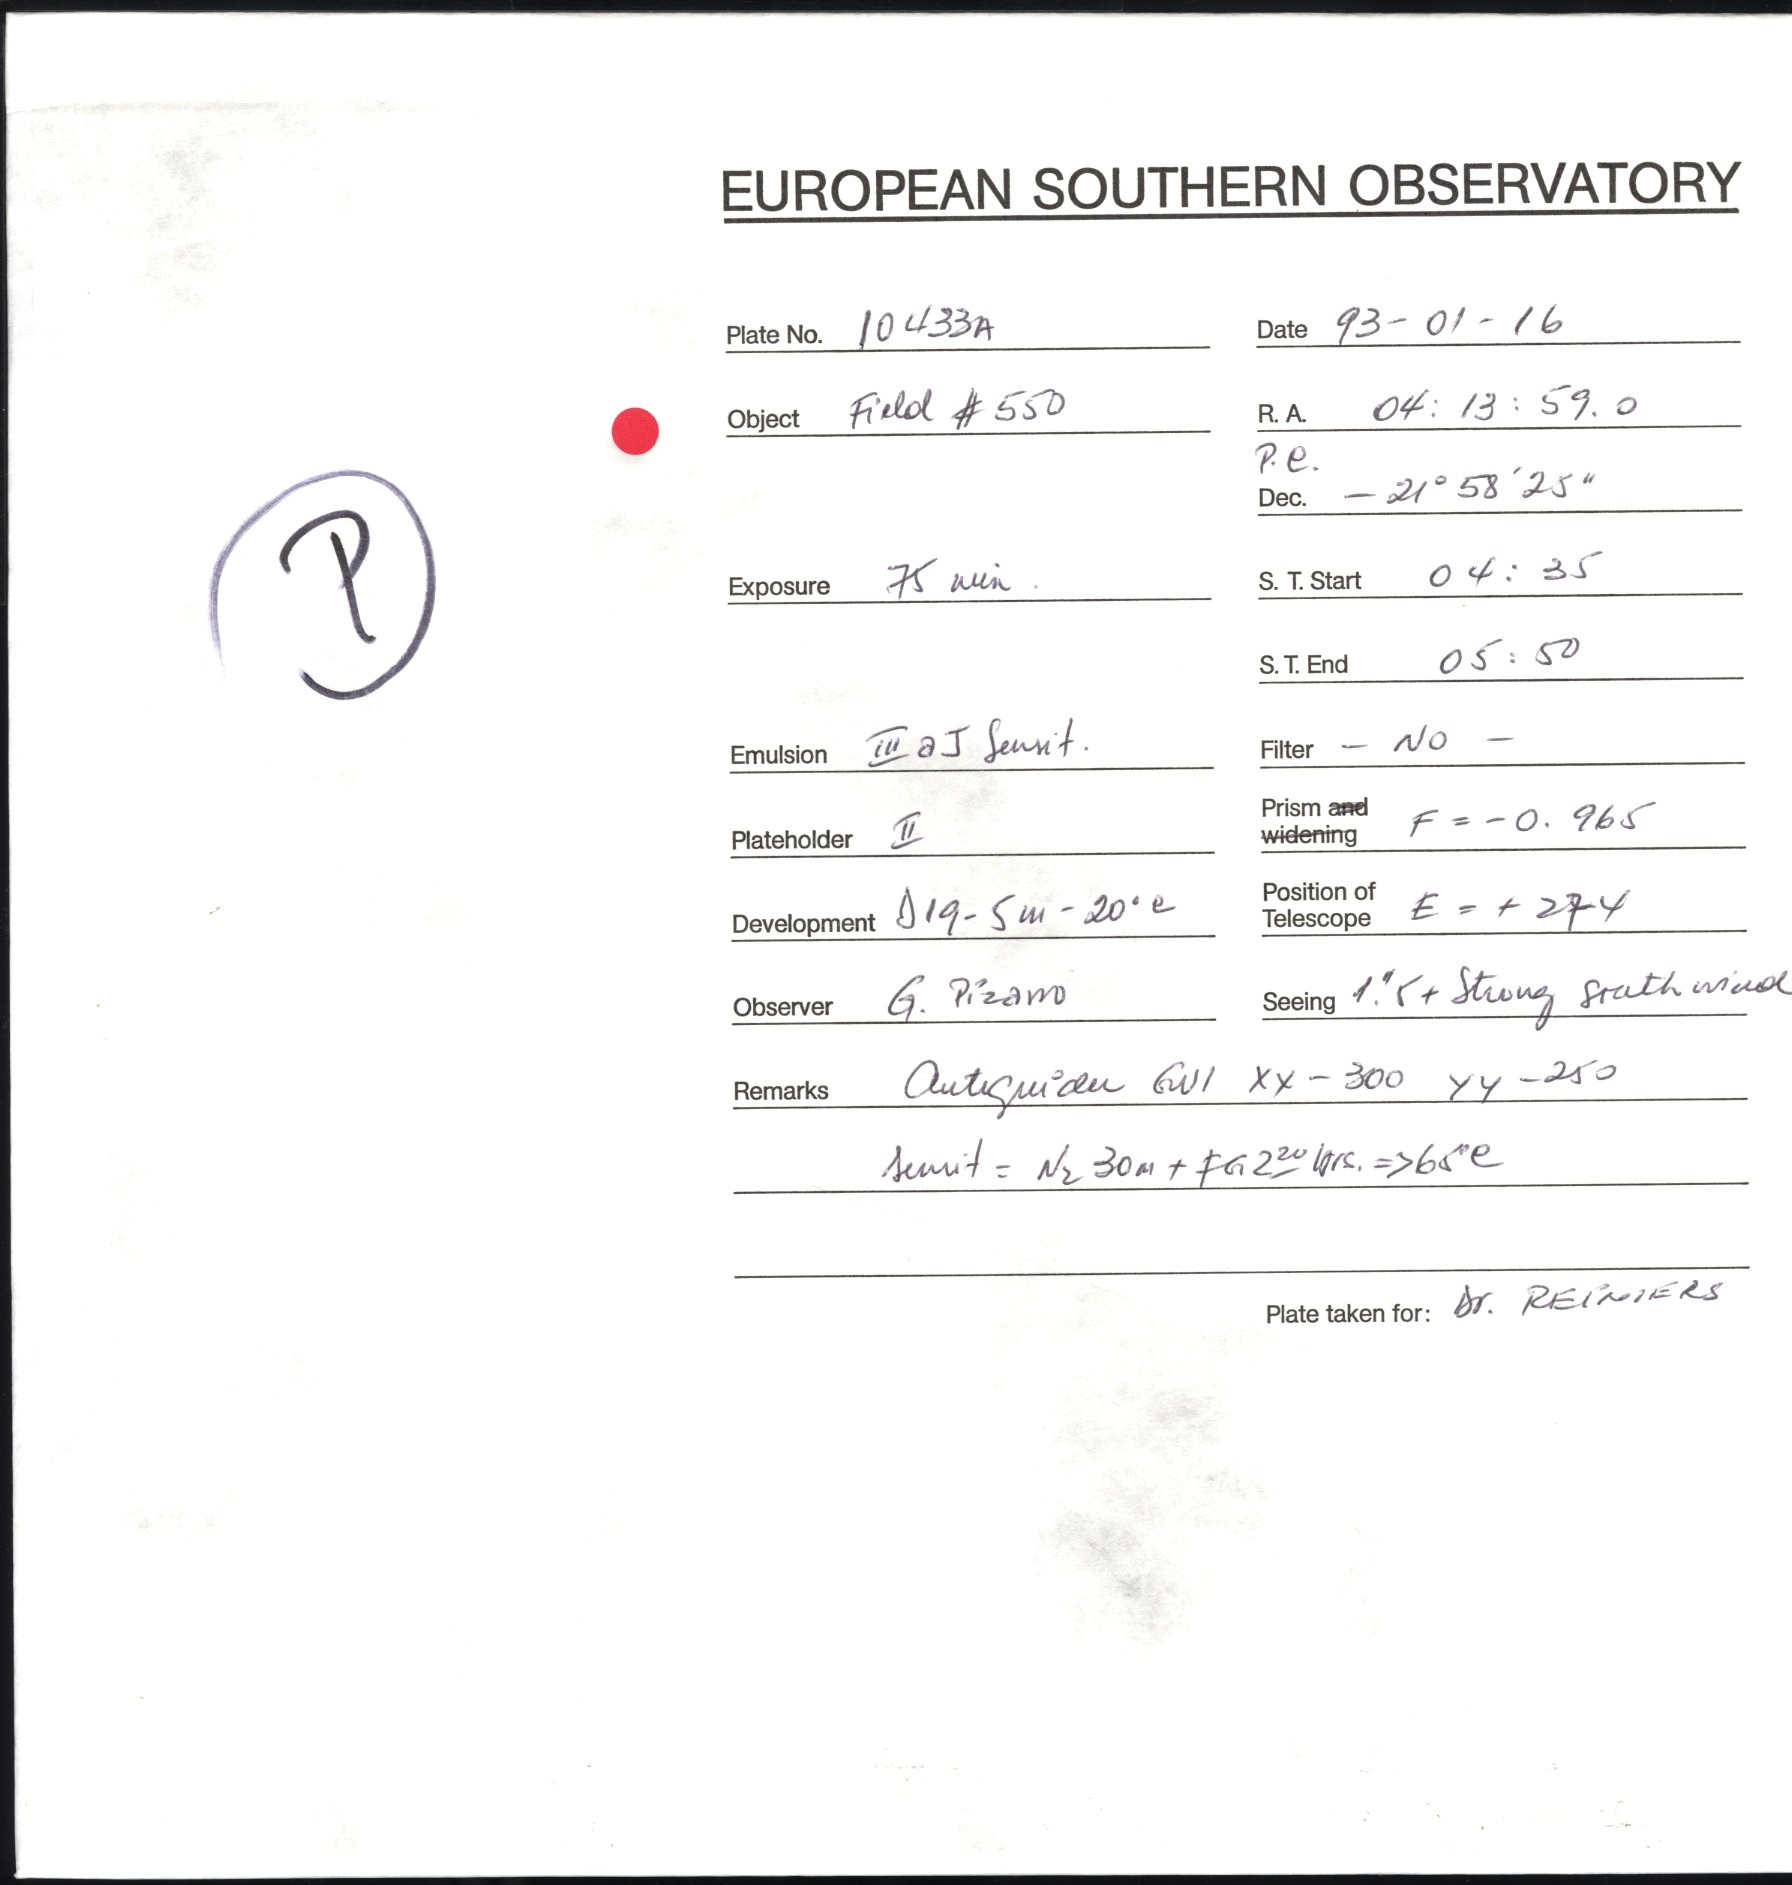 EUROPEAN SOUTHERN OBSERVATORY
Plate No. 10433A Date 93-01-16
Object Field # 550 R. A. 04: 13: 59. 0
P. e.
Dec. - 21° 58' 25"
P
Exposure 75 min. S. T. Start 04: 35
S. T. End 05: 50
Emulsion III a J Sensit. Filter - NO -
Plateholder II Prism and widening F = -0. 965
Development D19 - 5m - 20°C Position of Telescope E = + 274
Observer G. Pizarro Seeing 1."5 + Strong south wind
Remarks Autoguider XX - 300 YY - 250
Sensit = N2 30m + FG 2 20 hrs. => 65°C
Plate taken for: Dr. REINIERS